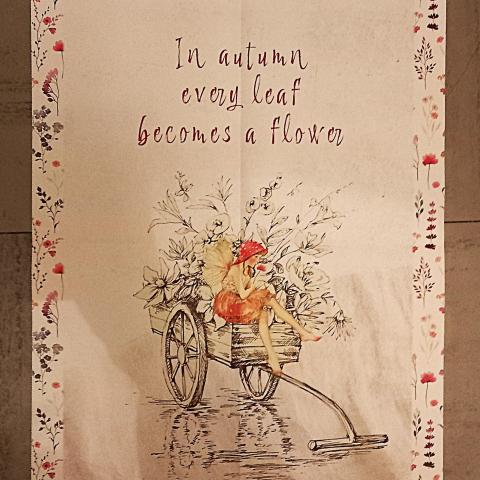 In autumn
every leaf
becomes a flower